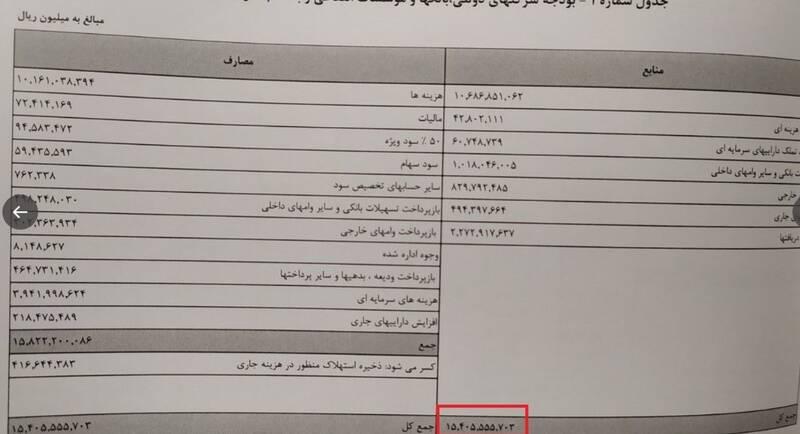 جدول شماره ۱ - بودجه شرکتهای دولتی، بانکها و موسسات
مبالغ به میلیون ریال
منابع
مصارف
۱۰,۶۸۶,۸۵۱,۰۶۲
هزینه ای ۴۲,۸۰۲,۱۱۱
تملک داراییهای سرمایه ای ۶۰,۷۴۸,۷۳۹
بانکی و سایر وامهای داخلی ۱,۰۱۸,۰۴۶,۰۰۵
خارجی ۸۲۹,۷۹۲,۴۸۵
جاری ۴۹۴,۳۹۷,۶۶۴
دریافتها ۲,۲۷۲,۹۱۷,۶۳۷
جمع کل ۱۵,۴۰۵,۵۵۵,۷۰۳
هزینه ها ۱۰,۱۶۱,۰۳۸,۳۹۴
مالیات ۷۲,۴۱۴,۱۶۹
۵۰ ٪ سود ویژه ۹۴,۵۸۳,۴۷۲
سود سهام ۵۹,۴۳۵,۵۹۳
سایر حسابهای تخصیص سود ۷۶۲,۳۳۸
بازپرداخت تسهیلات بانکی و سایر وامهای داخلی
بازپرداخت وامهای خارجی
وجوه اداره شده ۸,۱۴۸,۶۲۷
بازپرداخت ودیعه ، بدهیها و سایر پرداختها ۴۶۴,۷۳۱,۴۱۶
هزینه های سرمایه ای ۳,۹۴۱,۹۹۸,۶۲۴
افزایش داراییهای جاری ۲۱۸,۴۷۵,۴۸۹
جمع ۱۵,۸۲۲,۲۰۰,۰۸۶
کسر می شود: ذخیره استهلاک منظور در هزینه جاری ۴۱۶,۶۴۴,۳۸۳
جمع کل ۱۵,۴۰۵,۵۵۵,۷۰۳